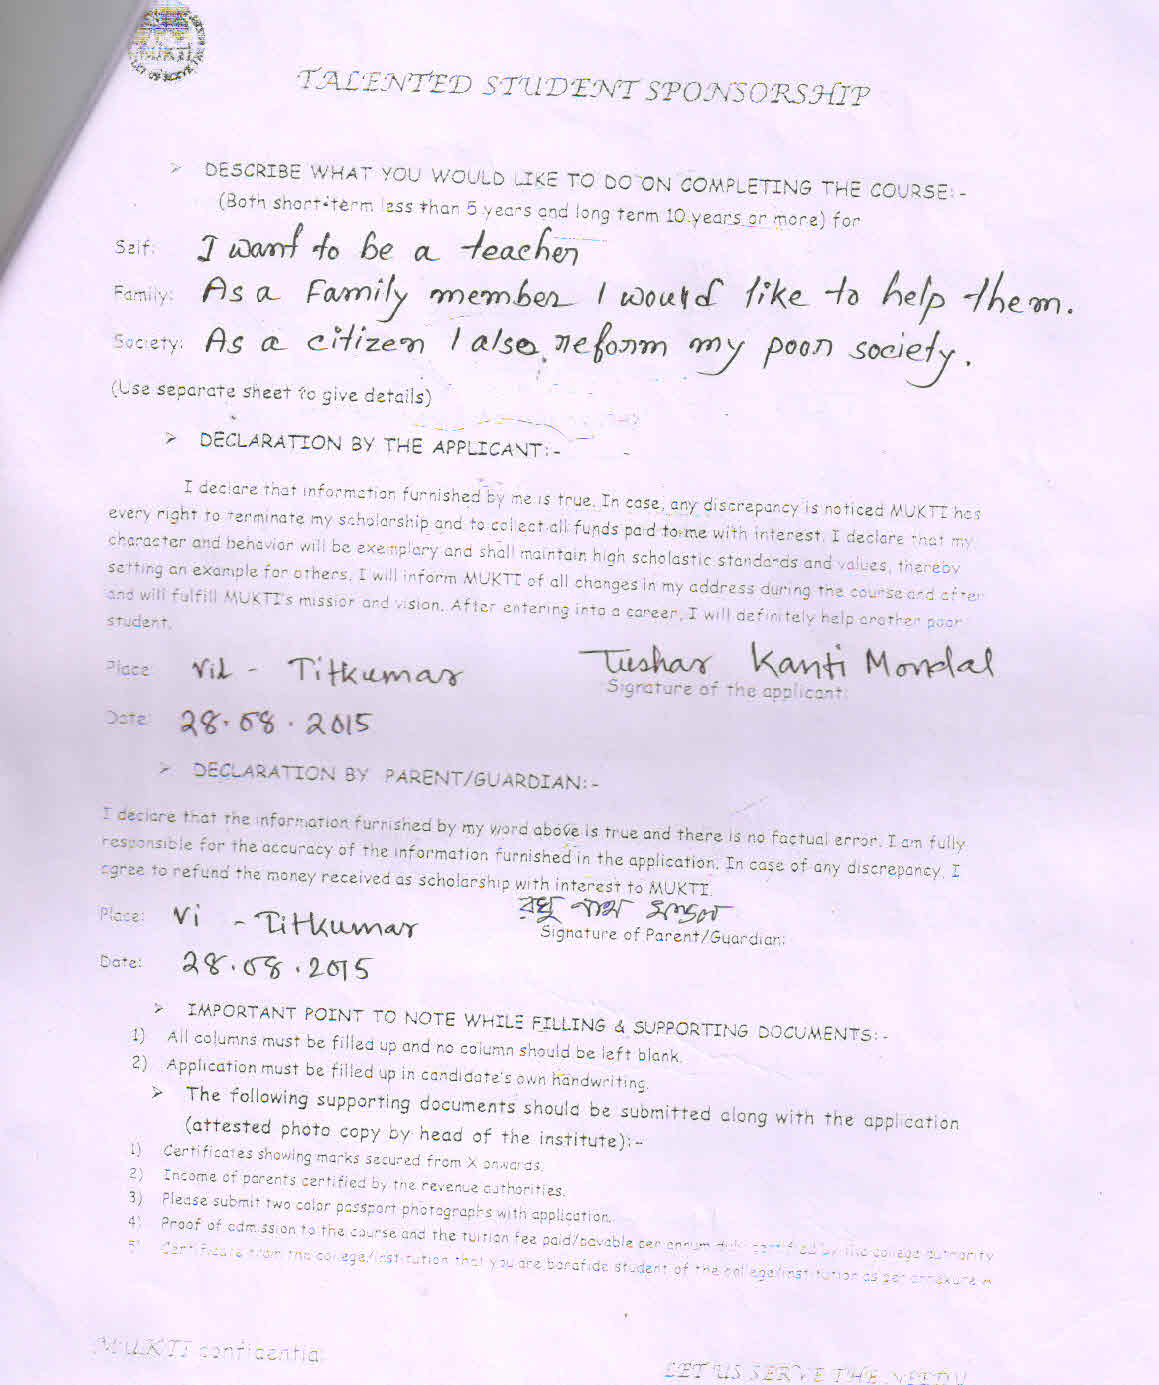 MUKTI
TALENTED STUDENT SPONSORSHIP
➢ DESCRIBE WHAT YOU WOULD LIKE TO DO ON COMPLETING THE COURSE:-
(Both short-term less than 5 years and long term 10 years or more) for
Self: I want to be a teacher
Family: As a Family member I would like to help them.
Society: As a citizen I also reform my poor society.
(Use separate sheet to give details)
➢ DECLARATION BY THE APPLICANT:-
I declare that information furnished by me is true. In case, any discrepancy is noticed MUKTI has
every right to terminate my scholarship and to collect all funds paid to me with interest. I declare that my
character and behavior will be exemplary and shall maintain high scholastic standards and values, thereby
setting an example for others. I will inform MUKTI of all changes in my address during the course and after
and will fulfill MUKTI's mission and vision. After entering into a career, I will definitely help another poor
student.
Place: Vil - Titkumar Tushar Kanti Mondal
Signature of the applicant:
Date: 28.08.2015
➢ DECLARATION BY PARENT/GUARDIAN:-
I declare that the information furnished by my word above is true and there is no factual error. I am fully
responsible for the accuracy of the information furnished in the application. In case of any discrepancy, I
agree to refund the money received as scholarship with interest to MUKTI.
Place: Vi - Titkumar
Signature of Parent/Guardian:
Date: 28.08.2015
➢ IMPORTANT POINT TO NOTE WHILE FILLING & SUPPORTING DOCUMENTS:-
1) All columns must be filled up and no column should be left blank.
2) Application must be filled up in candidate's own handwriting.
➢ The following supporting documents should be submitted along with the application
(attested photo copy by head of the institute):-
1) Certificates showing marks secured from X onwards.
2) Income of parents certified by the revenue authorities.
3) Please submit two color passport photographs with application.
4) Proof of admission to the course and the tuition fee paid/payable per annum duly certified by the college authority
5) Certificate from the college/institution that you are bonafide student of the college/institution as per annexure
MUKTI confidential
LET US SERVE THE NEEDY